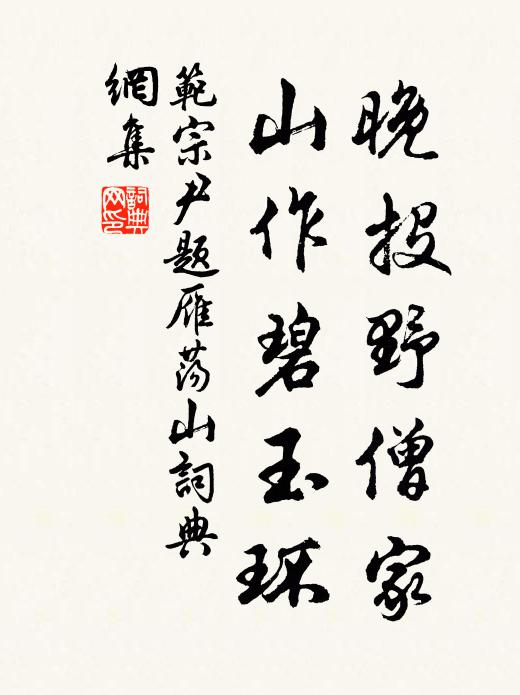 晚投野僧家
山作碧玉环
範宗尹题雁荡山詞典
網集
詞典
网印